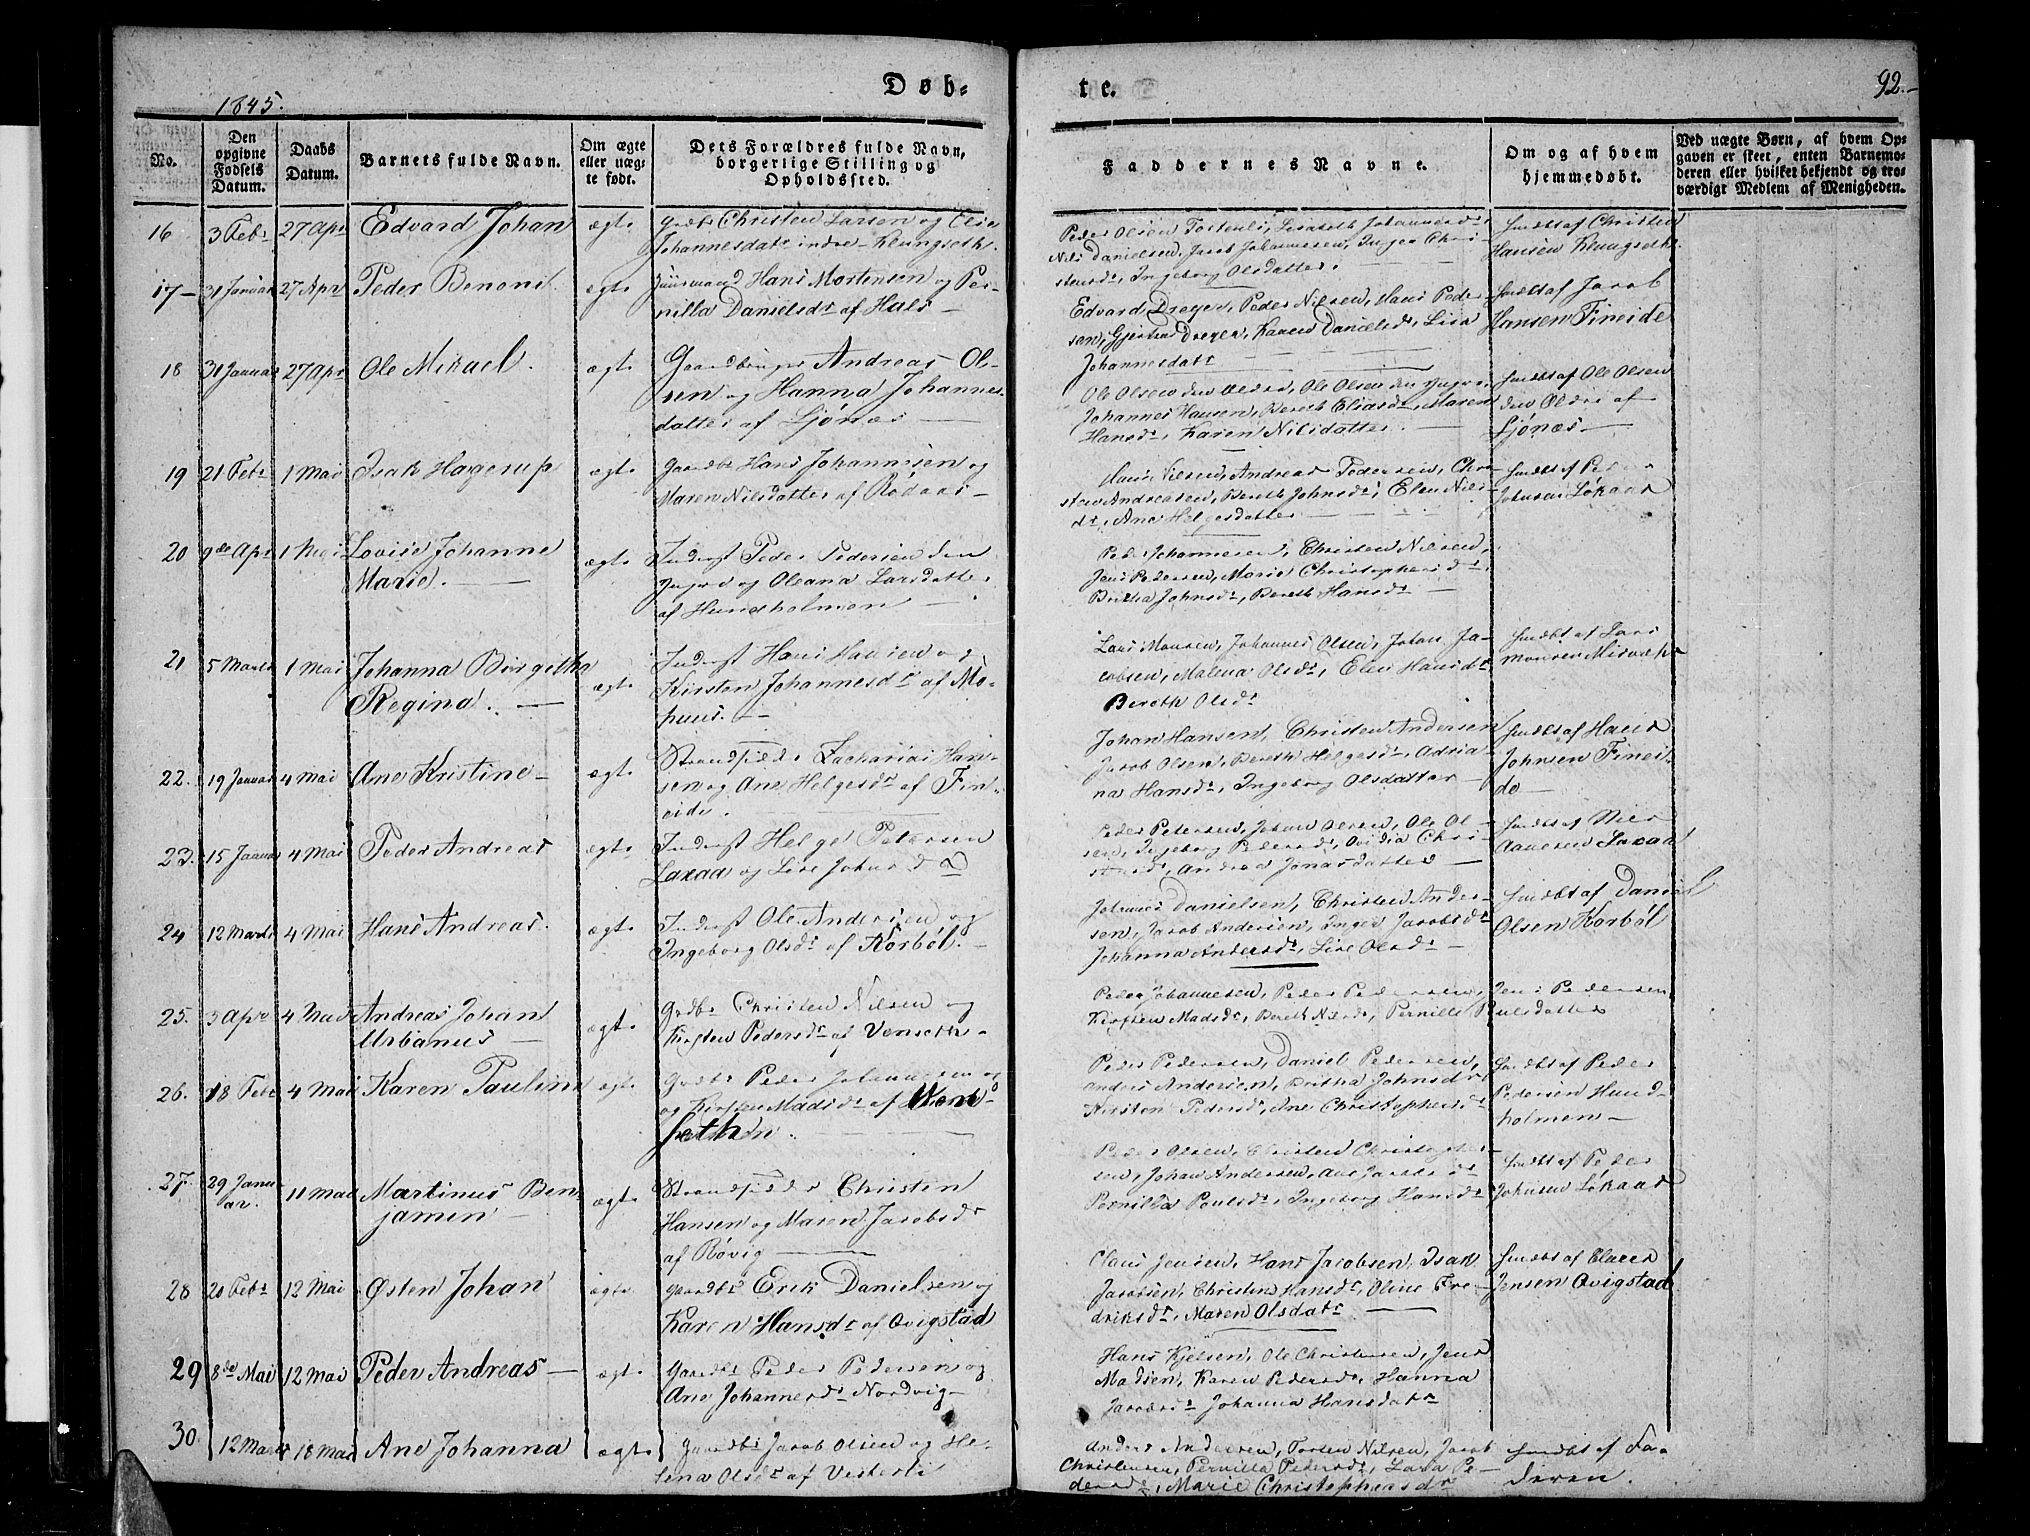 Døb-
te.
92.
1845.
No.
Den opgivne Fødsels Datum.
Daabs Datum.
Barnets fulde Navn.
Om ægte eller uæg-te født.
Dets Forældres fulde Navn, borgerlige Stilling og Opholdssted.
Faddernes Navne.
Om og af hvem hjemmedøbt.
Ved uægte Børn, af hvem Op-
gaven er skeet, enten Barnemo-
deren eller hvilket bekjendt og tro-
værdigt Medlem af Menigheden.
16 3 Febr 27 Apr Edvard Johan ægte Christen Larsen og
Johannesdatr indre Klungseth
Peder Olsen Lisabeth Johannesdr
Nils Danielsen, Jacob Johannesen, Inger Chri-
stensdr, Ingeborg Olsdatter.
hmdbt af Christen
Hansen Klungseth
17 31 Januar 27 Apr Peder Benoni ægte Huusmand Hans Mortensen og Per-
nilla Danielsdr af Hals
Edvard Dreyer, Peder Nilsen, Hans Peder
sen, Dreyer, Karen Danielsdr, Lisa
Johannesdatr
hmdbt af Jacob
Hansen Fineide
18 31 Januar 27 Apr Ole Mikael. ægte Gaardbruger Andreas Ol-
sen og Hanna Johannes
datter af Ljønæs
Ole Olsen den Ældre, Ole Olsen den yngre,
Johannes Hansen, Bereth Eliasdr, Maren
Hansdr, Karen Nilsdatter.
hmdbt af Ole Olsen
den Ældre af
Ljønæs
19 21 Febr 1 Mai Isak Hagerup ægte Gaardbr Hans Johannesen og
Maren Nilsdatter af Rødaas
Hans Nilsen, Andreas Pedersen, Chri
sten Andreasen, Bereth Johnsdr, Elen Nils-
dr, Ane Helgesdatter
hmdbt af Peder
Johnsen Løkaas
20 9de Apr 1 Mai Lovise Johanne
Marie. ægte Inderst Peder Pedersen den
Yngre og Oleana Larsdatter
af Hundholmen
Peder Johannesen, Christen Nilsen,
Jens Pedersen, Marie Christophersdr,
Britha Johnsdr, Bereth Hansdr
21 5 Marts 1 Mai Johanna Birgitha
Regina. ægte Inderst Hans Hansen og
Kirsten Johannesdr af Mo-
huus.
Lars Monsen, Johannes Olsen, Johan Ja-
cobsen, Malena Olsdr, Elen Hansdr
Bereth Olsdr
hmdbt af Lars
Monsen Misvær
22. 19 Januar 4 Mai Ane Kristine ægte Strandsidder Zacharias Han-
sen og Ane Helgesdr af Fin-
eide.
Johan Hansen, Christen Andersen
Jacob Olsen, Bereth Helgesdr, Adria-
na Hansdr, Ingeborg Olsdatter
hmdbt af Hans
Johnsen Finei-
de
23. 15 Januar 4 Mai Peder Andreas ægte Inderst Helge Petersen
Laxaa og Lise Johnsd
Peder Petersen, Johan Olsen, Ole Ol-
sen, Ingeborg Pedersdr, Ovidia Chri-
stensdr, Andrea Jonasdatter
hmdbt af
Laxaa
24 12 Marts 4 Mai Hans Andreas. ægte Inderst Ole Andersen og
Ingeborg Olsdr af Korbøl.
Johannes Danielsen, Christen Ander-
sen, Jacob Andersen, Inger Jacobsdr
Johanna Andersdr, Lise Olsdr
hmdbt af Daniel
Olsen Korbøl
25. 3 Apr 4 Mai Andreas Johan
Urbanus ægte Grdbr Christen Nilsen og
Kirsten Pedersdr af Venseth
Peder Johannesen, Peder Pedersen, Jens Pedersen,
Kirsten Madsdr, Bereth Nilsdr, Pernille Poulsdatter
26. 18 Febr 4 Mai Karen Paulina ægte Grdbr Peder Johannesen og
og Kirsten Madsdr af Wen-
sethn.
Peder Pedersen, Daniel Pedersen,
Anders Andersen, Britha Johnsdr
Kirsten Pedersdr, Ane Christophersdr
hmdbt af Peder
Pedersen Hund
holmen
27. 29 Janu
ar. 11 Mai Martinus Ben
jamin ægte Strandsidder Christen
Hansen og Maren Jacobsdr
af Røvig
Peder Olsen, Christen Christopher-
sen, Johan Andersen, Ane Jacobsdr
Pernilla Poulsdr, Ingeborg Hansdr
hmdbt af Peder
Johnsen Løkaas
28 20 Febr 12 Mai Østen Johan ægte Gaardbr Erik Danielsen og
Karen Hansdr af Qvigstad
Claus Jensen, Hans Jacobsen, Isak
Jacobsen, Christen Hansdr, Oline Fre-
driksdr, Maren Olsdatr
hmdbt af Claus
Jensen Qvigstad
29 8de Mai 12 Mai Peder Andreas ægte Gaardbr Peder Pedersen og
Ane Johannesdr Nordvig
Hans Kjelsen, Ole Christensen, Jens
Madsen, Karen Pedersdr, Hanna
Jacobsdr Johanna Hansdatr
30. 12 Marts 18 Mai Ane Johanna ægte Gaardbr Jacob Olsen og He-
lena Olsdr af Vesterli
Anders Andersen, Torsten Nilsen, Jacob
Christensen, Pernilla Pedersdr, Lava Pe-
dersdr, Marie Christophersdr
hmdbt af Fa-
deren.